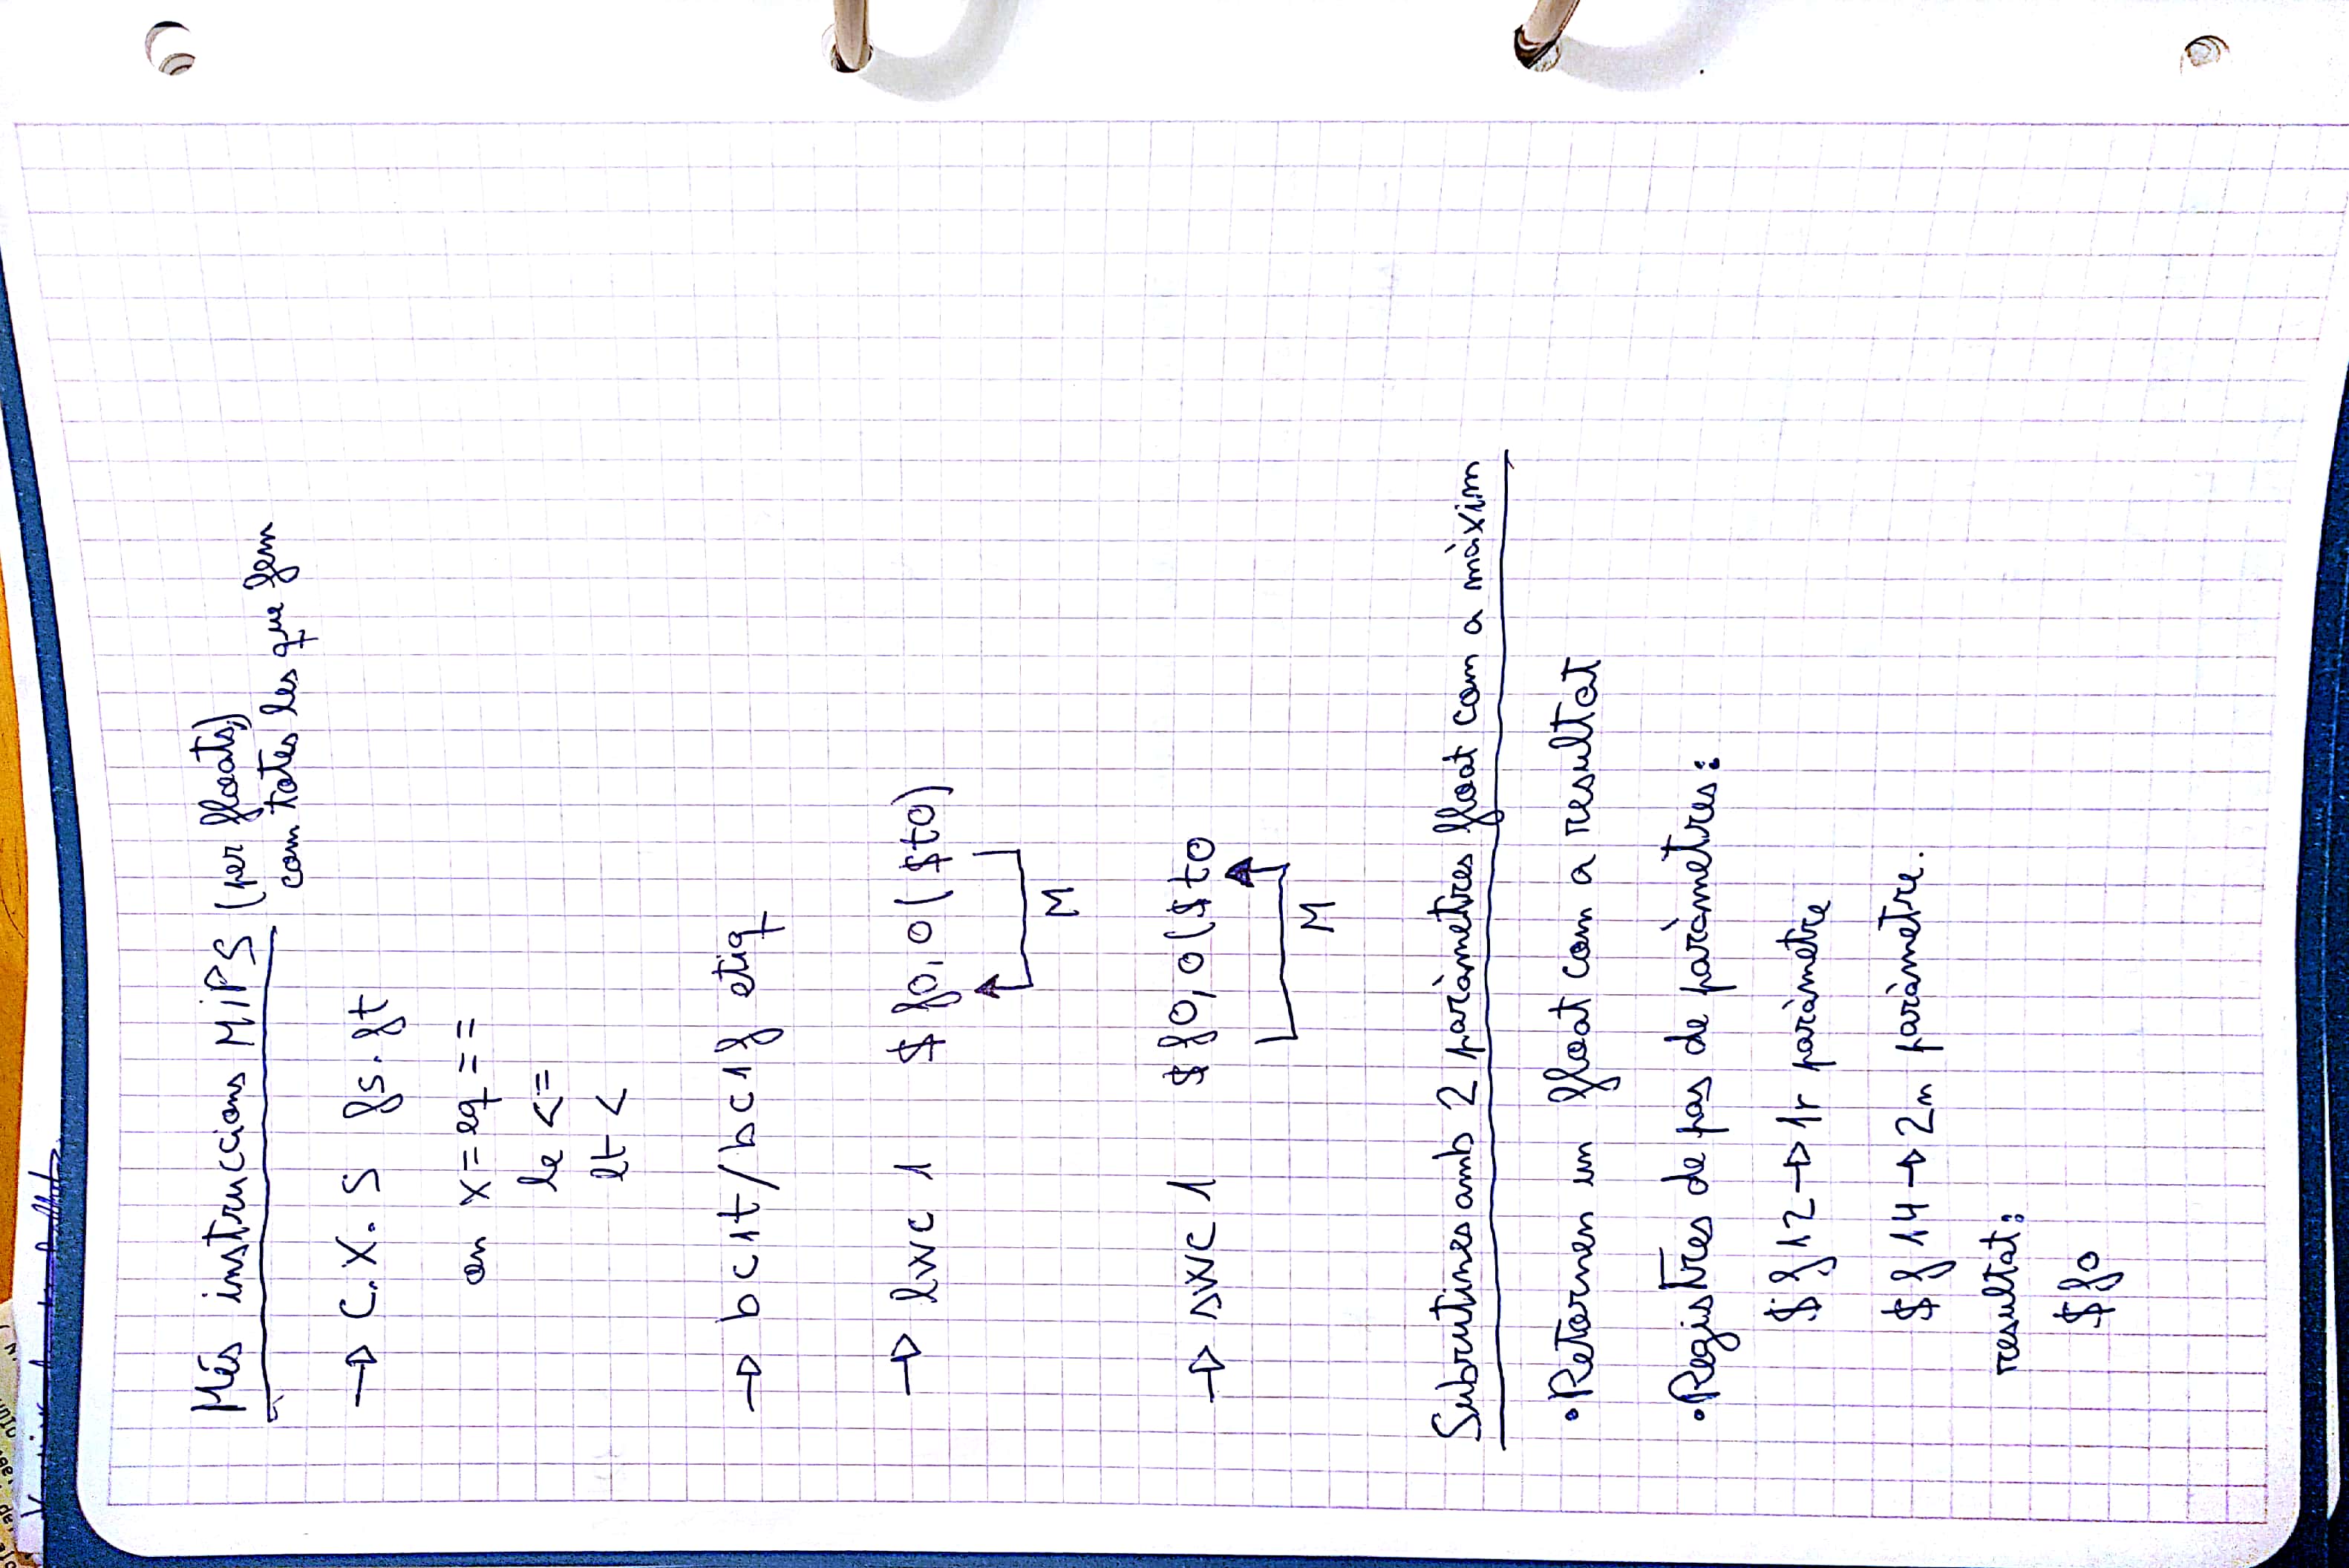 Més instruccions MiPS (per floats,)
com totes les que fem
→ C.X. S fs.ft
on x = eq ==
le <=
lt <
→ bc1t/bc1f etiq
→ lwc 1 $f0, 0($t0)
M
→ swc 1 $f0, 0($t0
M
Subrutines amb 2 paràmetres float com a màxim
• Retornen un float com a resultat
• Registres de pas de paràmetres:
$f12 → 1r paràmetre
$f14 → 2n paràmetre.
resultat:
$f0